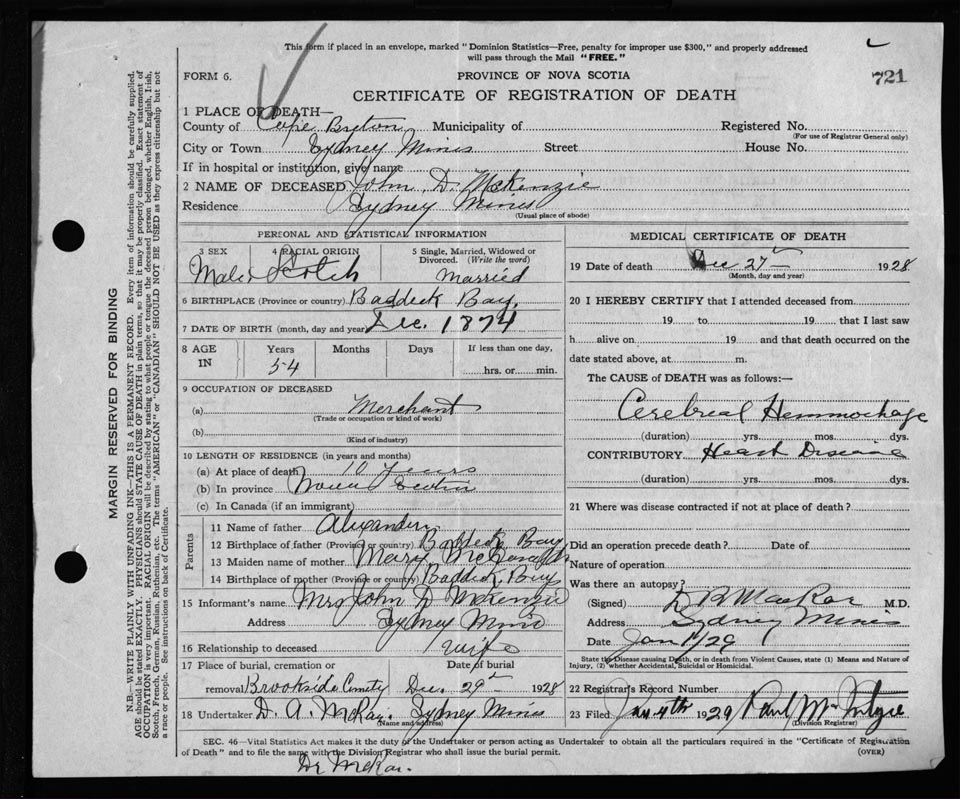 This form if placed in an envelope, marked "Dominion Statistics—Free, penalty for improper use $300," and properly addressed
will pass through the Mail "FREE."
FORM 6.
PROVINCE OF NOVA SCOTIA
721
CERTIFICATE OF REGISTRATION OF DEATH
1 PLACE OF DEATH—
County of Cape Breton Municipality of Registered No.
(For use of Registrar General only)
City or Town Sydney Mines Street House No.
If in hospital or institution, give name
2 NAME OF DECEASED John D. McKenzie
Residence Sydney Mines
(Usual place of abode)
PERSONAL AND STATISTICAL INFORMATION
3 SEX 4 RACIAL ORIGIN 5 Single, Married, Widowed or
Divorced. (Write the word)
Male Scotch married
6 BIRTHPLACE (Province or country) Baddeck Bay
7 DATE OF BIRTH (month, day and year) Dec. 1874
8 AGE IN Years Months Days If less than one day,
54 hrs. or min.
9 OCCUPATION OF DECEASED
(a) Merchant
(Trade or occupation or kind of work)
(b)
(Kind of industry)
10 LENGTH OF RESIDENCE (in years and months)
(a) At place of death 10 years
(b) In province Nova Scotia
(c) In Canada (if an immigrant)
Parents
11 Name of father Alexander
12 Birthplace of father (Province or country) Baddeck Bay
13 Maiden name of mother Mary
14 Birthplace of mother (Province or country) Baddeck Bay
15 Informant's name Mrs John D McKenzie
Address Sydney Mines
16 Relationship to deceased wife
17 Place of burial, cremation or Date of burial
removal Brookside Cemetery Dec. 29th 1928
18 Undertaker D. A. McKay. Sydney Mines
(Name and address)
MEDICAL CERTIFICATE OF DEATH
19 Date of death Dec 27th 1928
(Month, day and year)
20 I HEREBY CERTIFY that I attended deceased from
19 to 19 that I last saw
h alive on 19 and that death occurred on the
date stated above, at m.
The CAUSE of DEATH was as follows:—
Cerebreal Hemmorhage
(duration) yrs. mos. dys.
CONTRIBUTORY Heart Disease
(duration) yrs. mos. dys.
21 Where was disease contracted if not at place of death?
Did an operation precede death? Date of
Nature of operation
Was there an autopsy?
(Signed) M.D.
Address Sydney Mines
Date Jan 1/29
State the Disease causing Death, or in death from Violent Causes, state (1) Means and Nature of
Injury, (2) whether Accidental, Suicidal or Homicidal.
22 Registrar's Record Number
23 Filed Jan 4th 1929
(Division Registrar)
SEC. 46—Vital Statistics Act makes it the duty of the Undertaker or person acting as Undertaker to obtain all the particulars required in the "Certificate of Registration
of Death" and to file the same with the Division Registrar who shall issue the burial permit. (OVER)
Dr McKay.
MARGIN RESERVED FOR BINDING
N.B.—WRITE PLAINLY WITH UNFADING INK—THIS IS A PERMANENT RECORD. Every item of information should be carefully supplied.
AGE should be stated EXACTLY. PHYSICIANS should STATE CAUSE OF DEATH in plain terms, so that it may be properly classified. Exact statement of
OCCUPATION is very important. RACIAL ORIGIN will be described by stating to what people or tongue the deceased person belonged, whether English, Irish,
Scotch, French, German, Russian, Ruthenian, etc. The terms "AMERICAN" or "CANADIAN" SHOULD NOT BE USED as they express citizenship but not
a race or people. See instructions on back of Certificate.